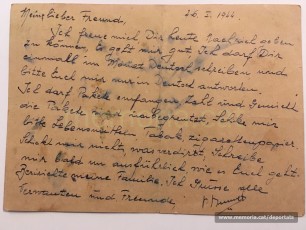 Mein lieber Freund, 26. I. 1944.
Ich freue mich Dir heute nachricht geben
zu können, es geht mir gut. Ich darf Dir
einmall im Monat Deutsch schreiben und
bitte Euch mir nur in Deutsch antworten.
Ich darf Pakete empfangen, zahl und Gewicht
die Pakete sind unbegrenzt, Schike mir
bitte Lebensmitteln Tabak, zigarettenpapier.
Schikt nur nichts, was verdirbt. Schreibe
mir bald und ausführlich, wie es Euch geht.
meine Familie. Ich Grüsse alle
Verwanten und Freunde!
www.memoria.cat/deportats